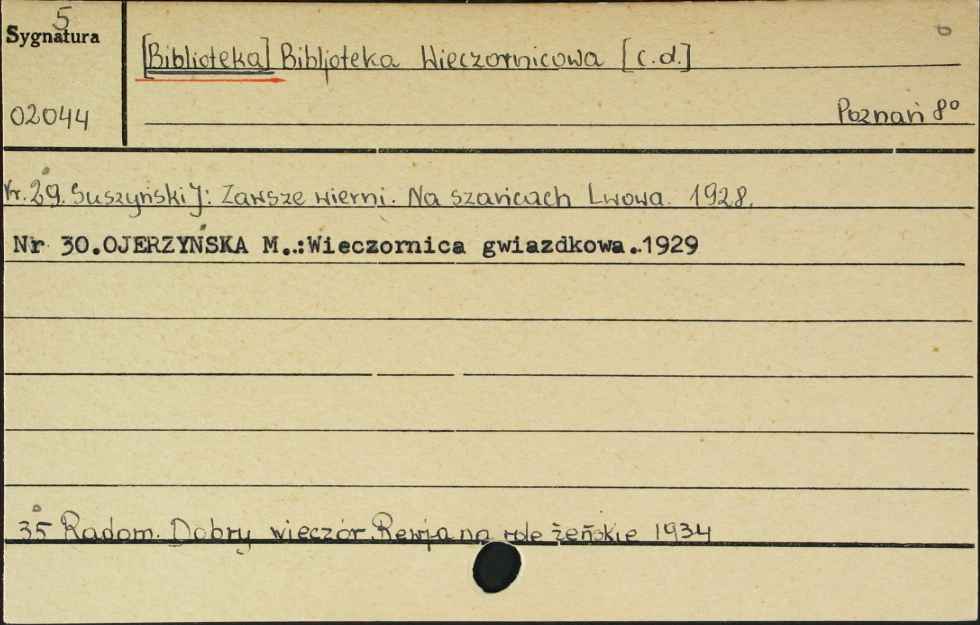 5
Sygnatura
6
[Biblioteka] Bibljoteka Wieczornicowa [c.d.]
02044
Poznań 8°
Nr. 29. Suszyński J: Zawsze wierni. Na szańcach Lwowa. 1928.
Nr 30.OJERZYŃSKA M..:Wieczornica gwiazdkowa..1929
35 Radom. Dobry wieczór. Rewja na role żeńskie 1934